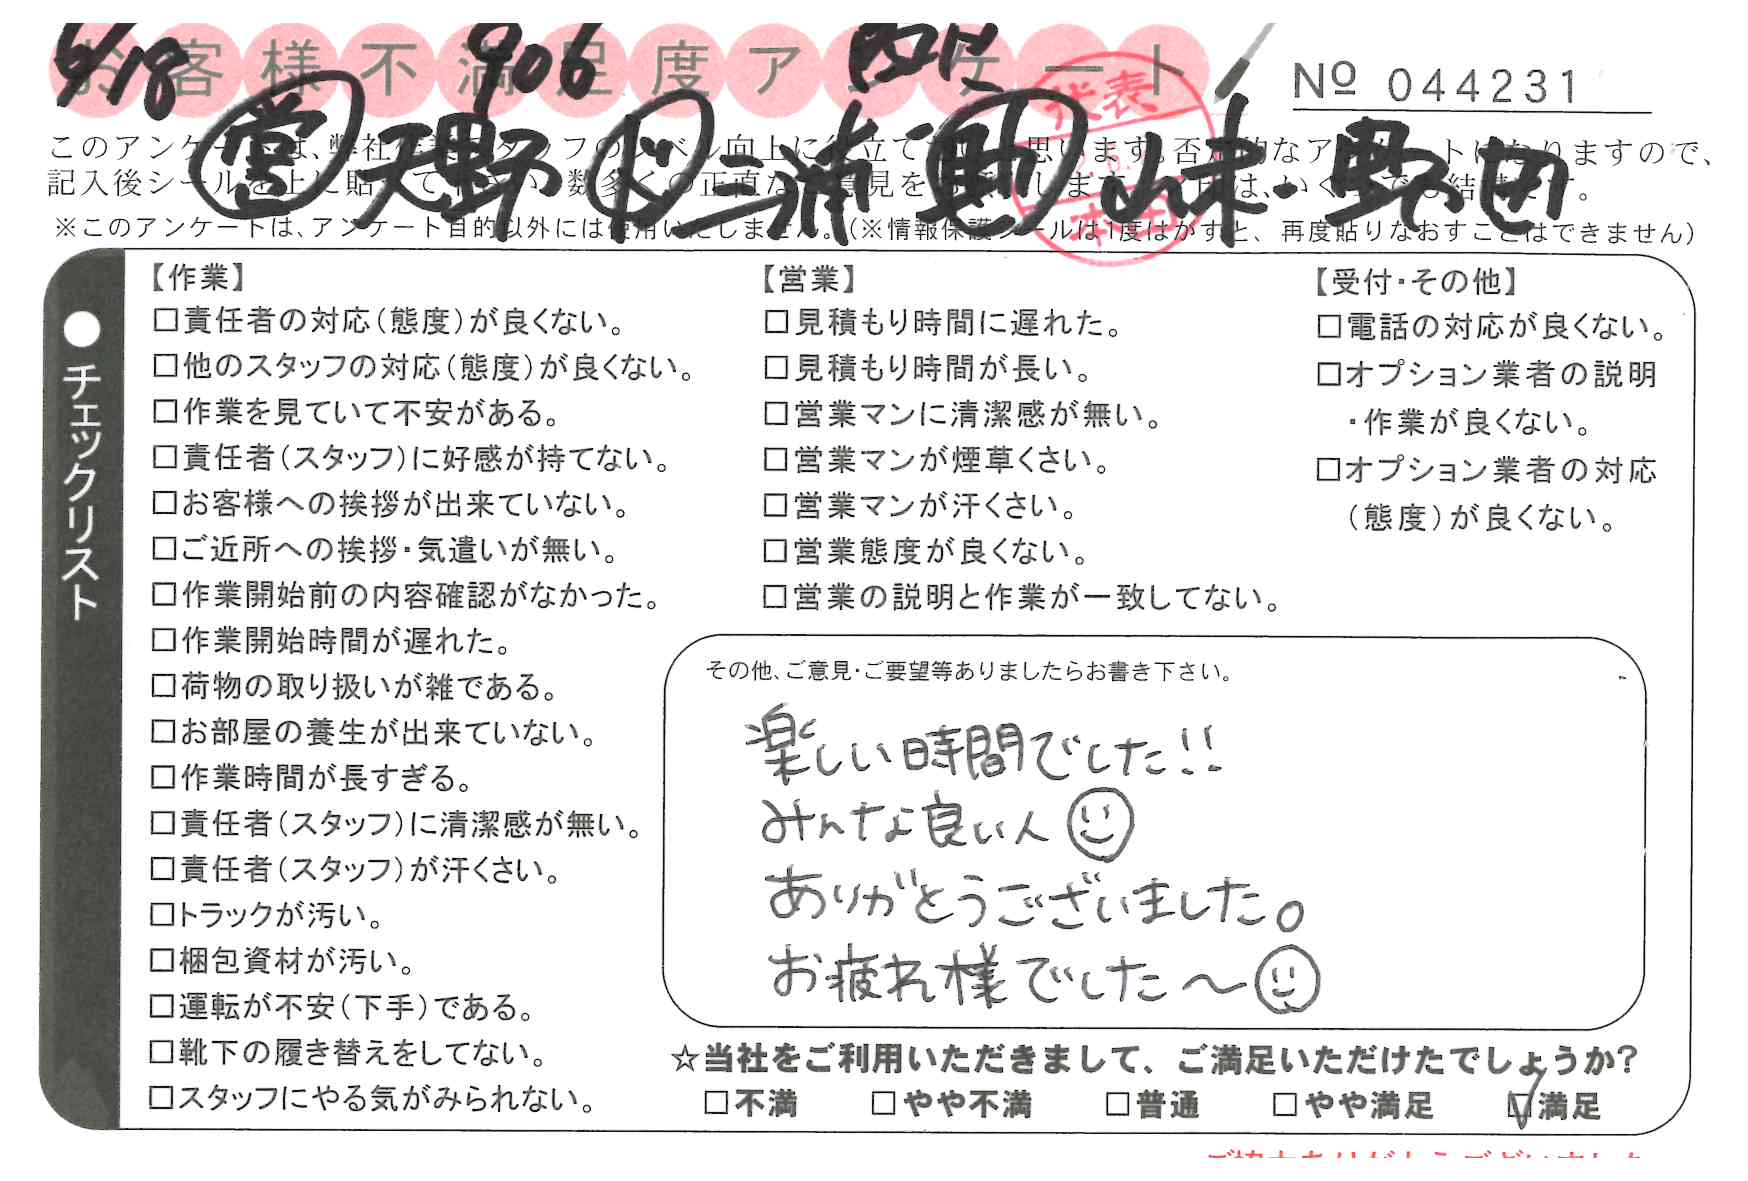 6/18 906
お客様不満足度アンケート
Nº 044231
営 天野 ド 三浦 助 山本・野田
代表
このアンケートは、弊社作業スタッフのレベル向上に役立てたいと思います。否定的なアンケートになりますので、
記入後シールを上に貼って下さい。数多くの正直なご意見をお願いします。
※このアンケートは、アンケート目的以外には使用いたしません。(※情報保護シールは1度はがすと、再度貼りなおすことはできません)
●チェックリスト
【作業】
□責任者の対応(態度)が良くない。
□他のスタッフの対応(態度)が良くない。
□作業を見ていて不安がある。
□責任者(スタッフ)に好感が持てない。
□お客様への挨拶が出来ていない。
□ご近所への挨拶・気遣いが無い。
□作業開始前の内容確認がなかった。
□作業開始時間が遅れた。
□荷物の取り扱いが雑である。
□お部屋の養生が出来ていない。
□作業時間が長すぎる。
□責任者(スタッフ)に清潔感が無い。
□責任者(スタッフ)が汗くさい。
□トラックが汚い。
□梱包資材が汚い。
□運転が不安(下手)である。
□靴下の履き替えをしてない。
□スタッフにやる気がみられない。
【営業】
□見積もり時間に遅れた。
□見積もり時間が長い。
□営業マンに清潔感が無い。
□営業マンが煙草くさい。
□営業マンが汗くさい。
□営業態度が良くない。
□営業の説明と作業が一致してない。
【受付・その他】
□電話の対応が良くない。
□オプション業者の説明
・作業が良くない。
□オプション業者の対応
(態度)が良くない。
その他、ご意見・ご要望等ありましたらお書き下さい。
楽しい時間でした!!
みんな良い人
ありがとうございました。
お疲れ様でした〜
☆当社をご利用いただきまして、ご満足いただけたでしょうか?
□不満 □やや不満 □普通 □やや満足 ☑満足
ご協力ありがとうございました